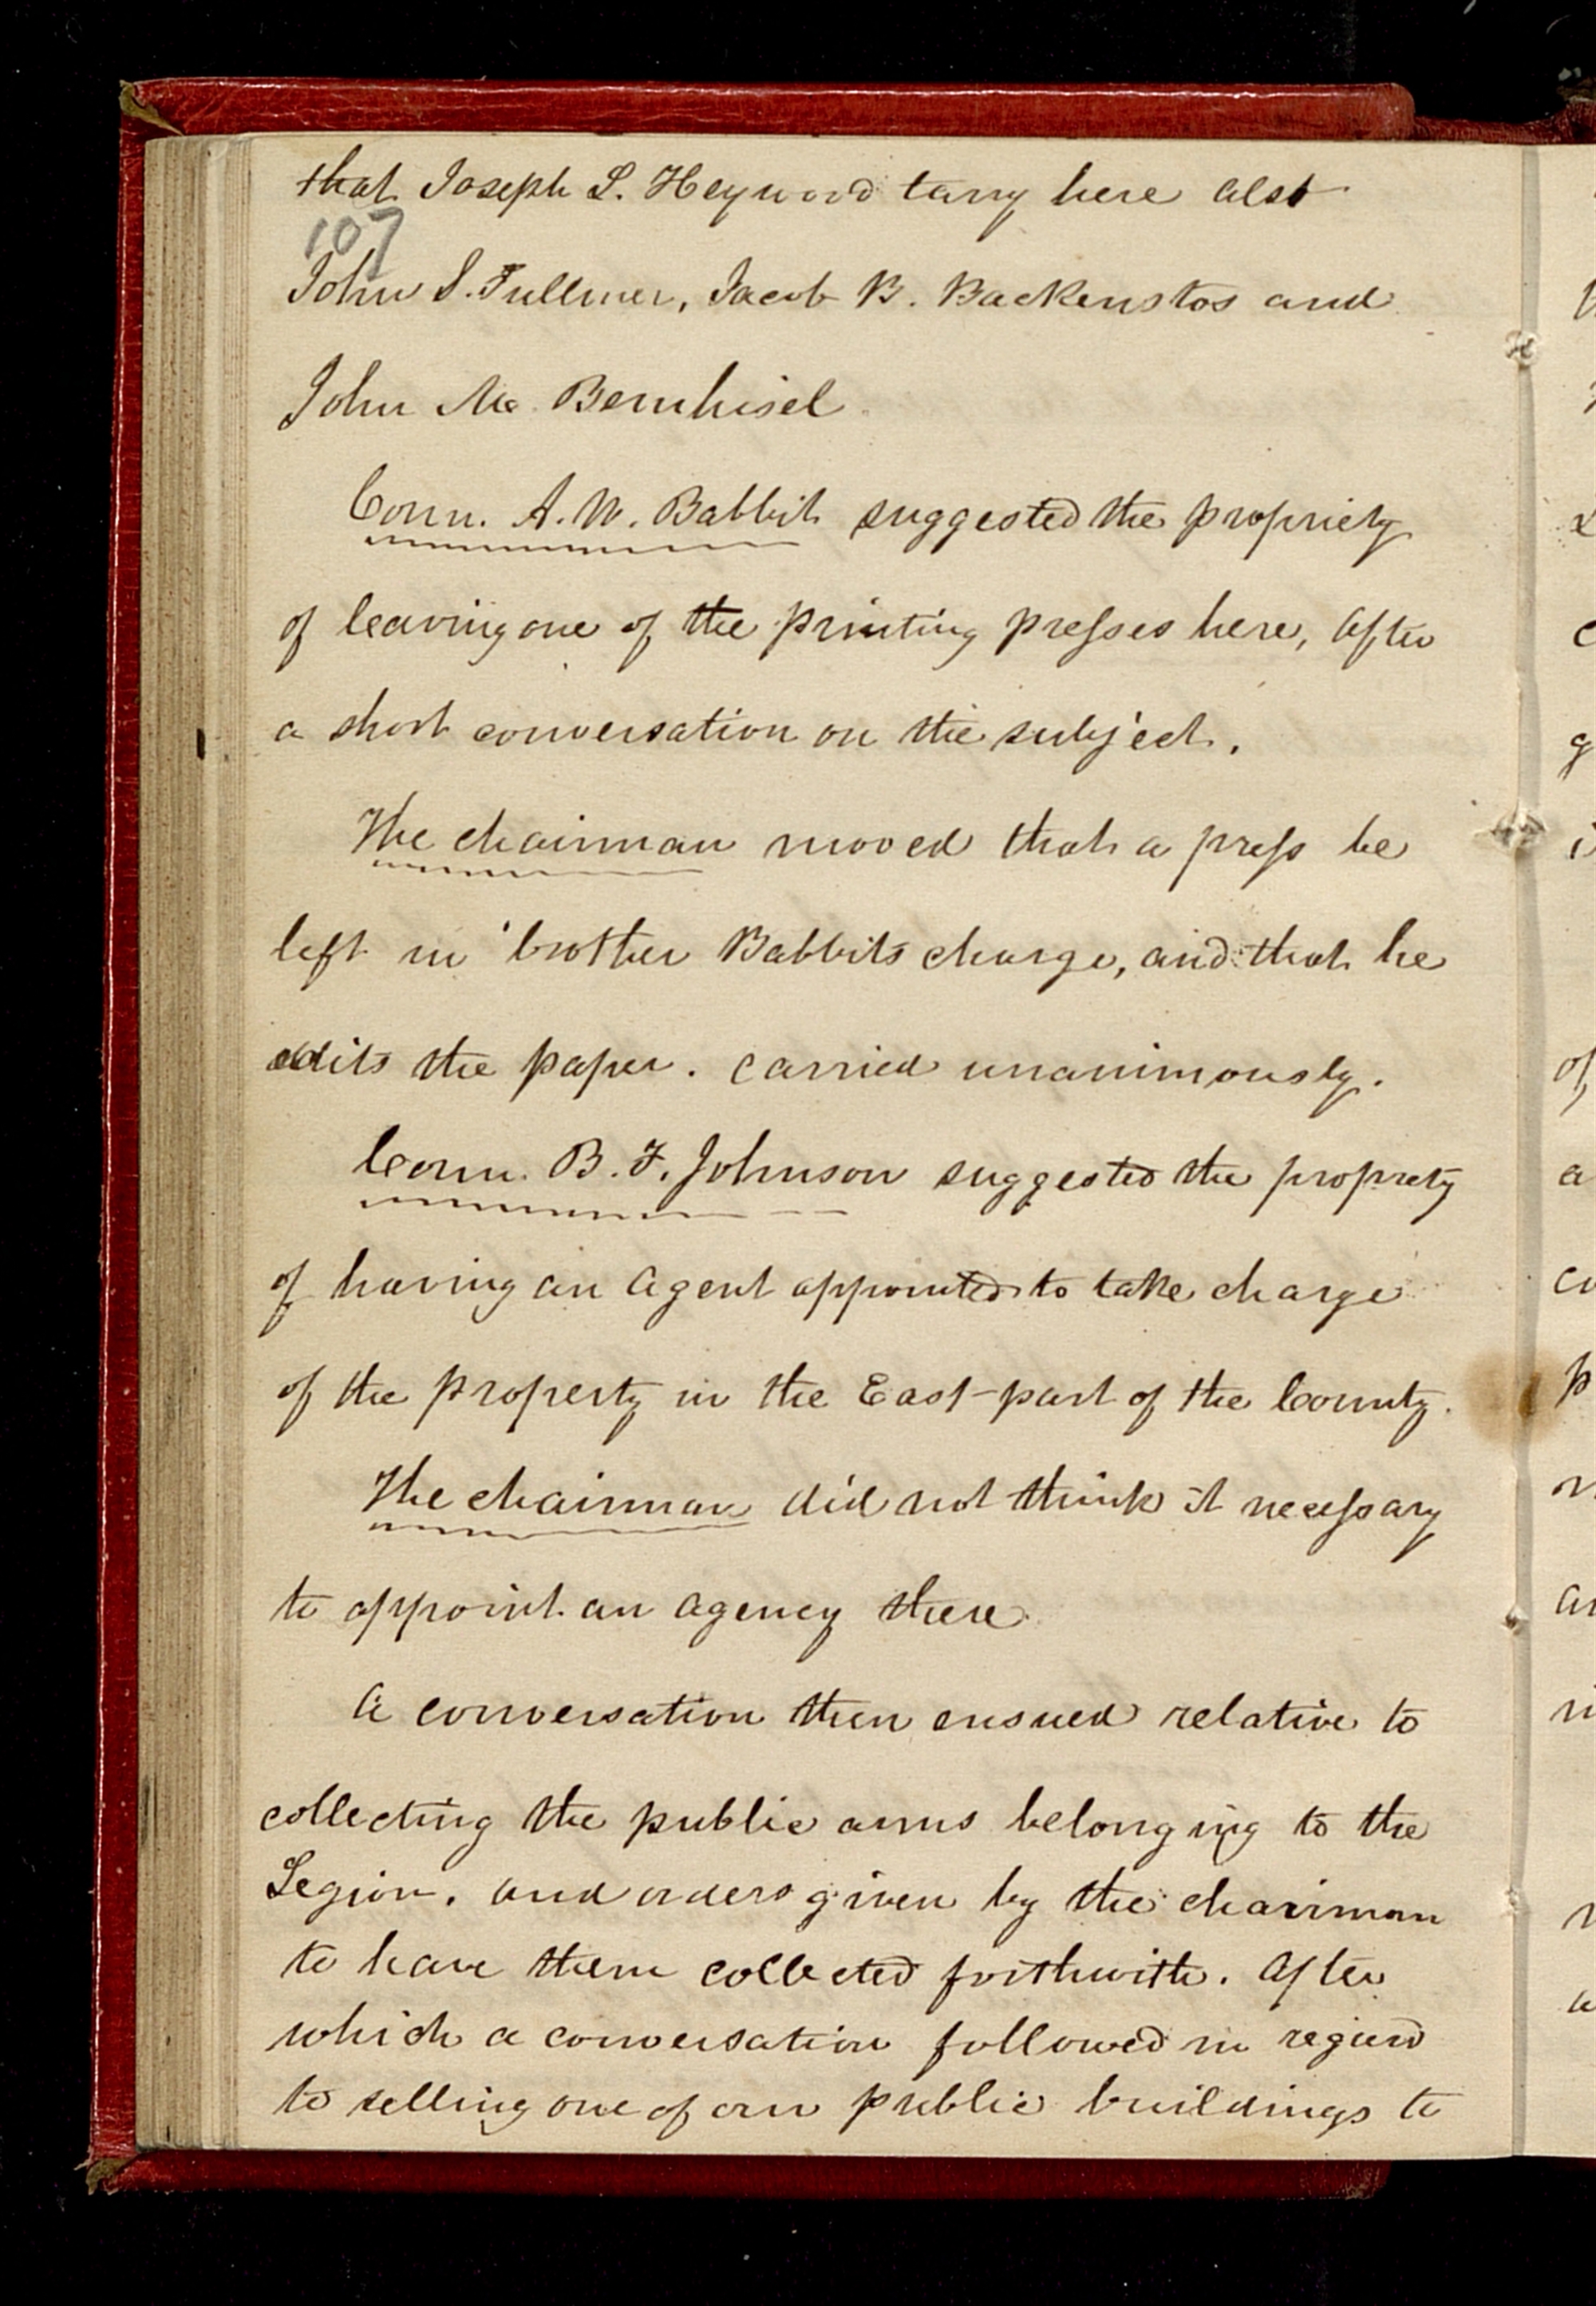 that Joseph L. Heywood tarry here also
107
John S. Fullmer, Jacob B. Backenstos and
John M. Bernhisel
Coun. A. W. Babbit suggested the propriety
of leaving one of the printing presses here, After
a short conversation on the subject.
The chairman moved that a press be
left in brother Babbits charge, and that he
edits the paper. carried unanimously.
Coun. B. F. Johnson suggested the propriety
of having an Agent appointed to take charge
of the property in the East part of the County.
The chairman did not think it necessary
to appoint an agency there
A conversation then ensued relative to
collecting the public arms belonging to the
Legion. and orders given by the chairman
to have them collected forthwith. After
which a conversation followed in regard
to selling one of our public buildings to